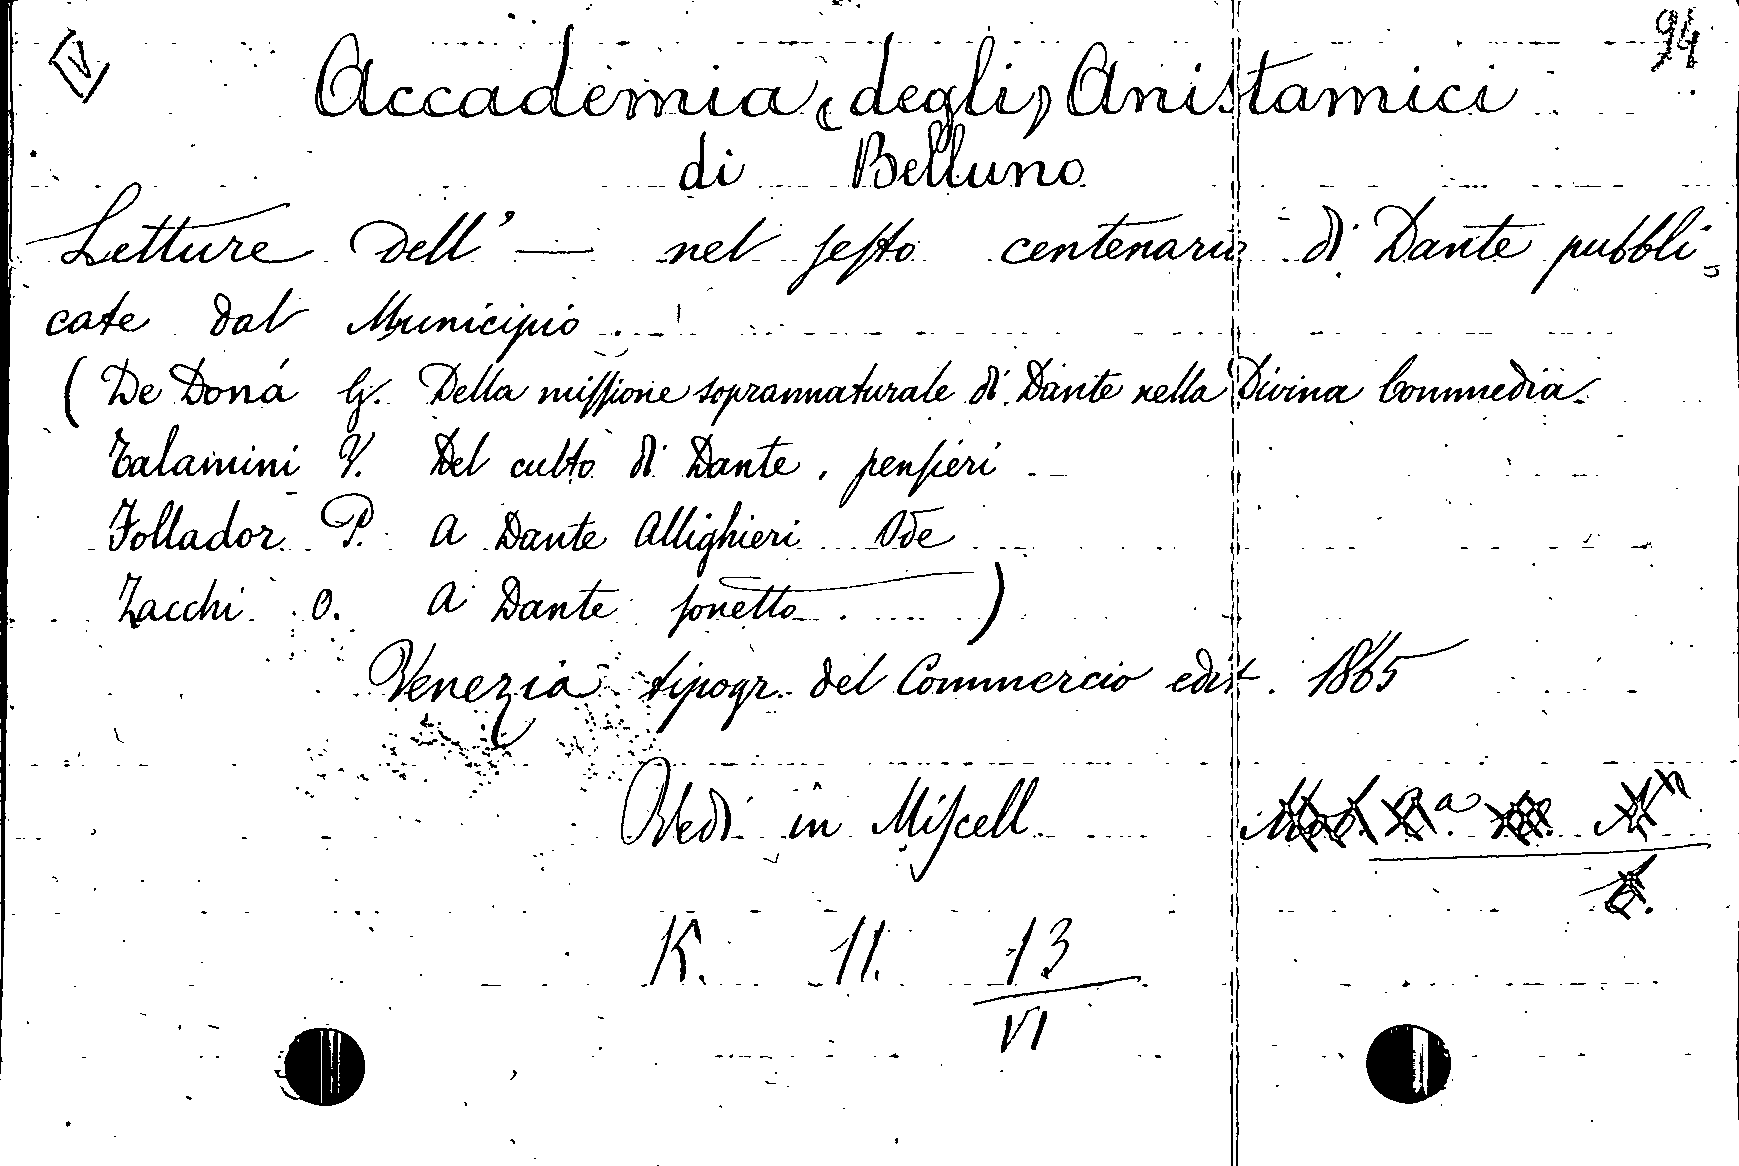 V 94
Accademia (degli) Anistamici
di Belluno
Letture dell' — nel sesto centenario di Dante pubbli=
cate dal Municipio.
(De Doná G. Della missione soprannaturale di Dante nella Divina Commedia.
Talamini V. Del culto di Dante, pensieri
Follador P. A Dante Allighieri Ode
Zacchi O. A Dante sonetto.)
Venezia tipogr. del Commercio edit. 1865
Vedi in Miscell.
K. 11. 13
VI